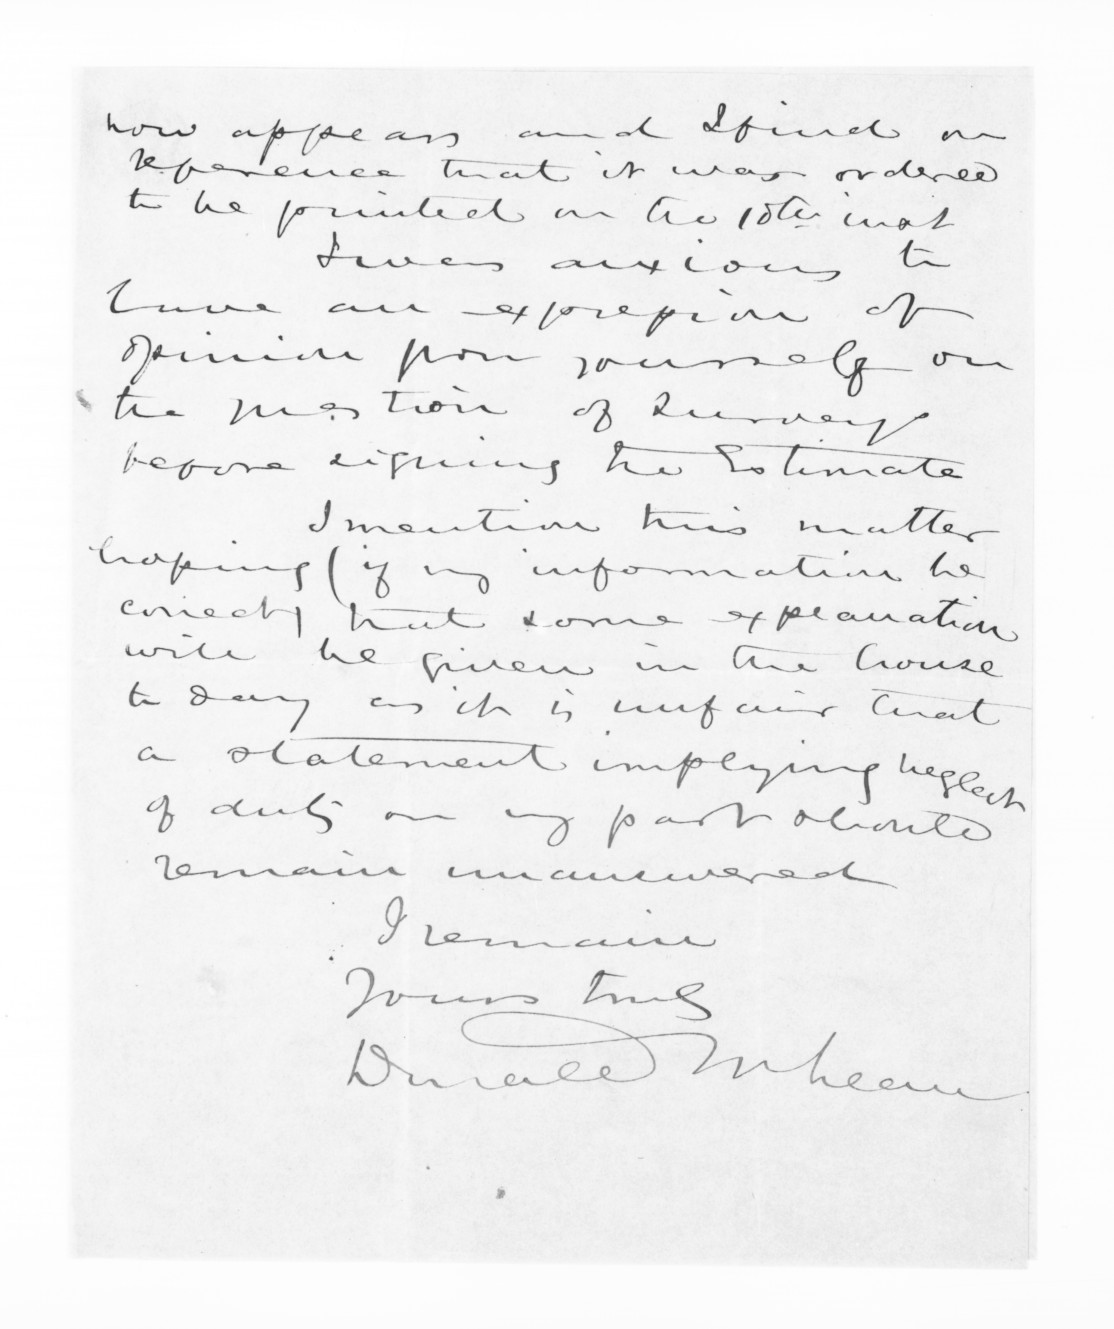 now appears and I find on
reference that it was ordered
to be printed on the 10th inst
I was anxious to
have an expression of
opinion from yourself on
the question of Surveys
before signing the Estimate
I mention this matter
hoping (if my information be
correct) that some explanation
will be given in the house
to day as it is unfair that
a statement implying neglect
of duty on my part should
remain unanswered
I remain
Yours truly
Donald McLean